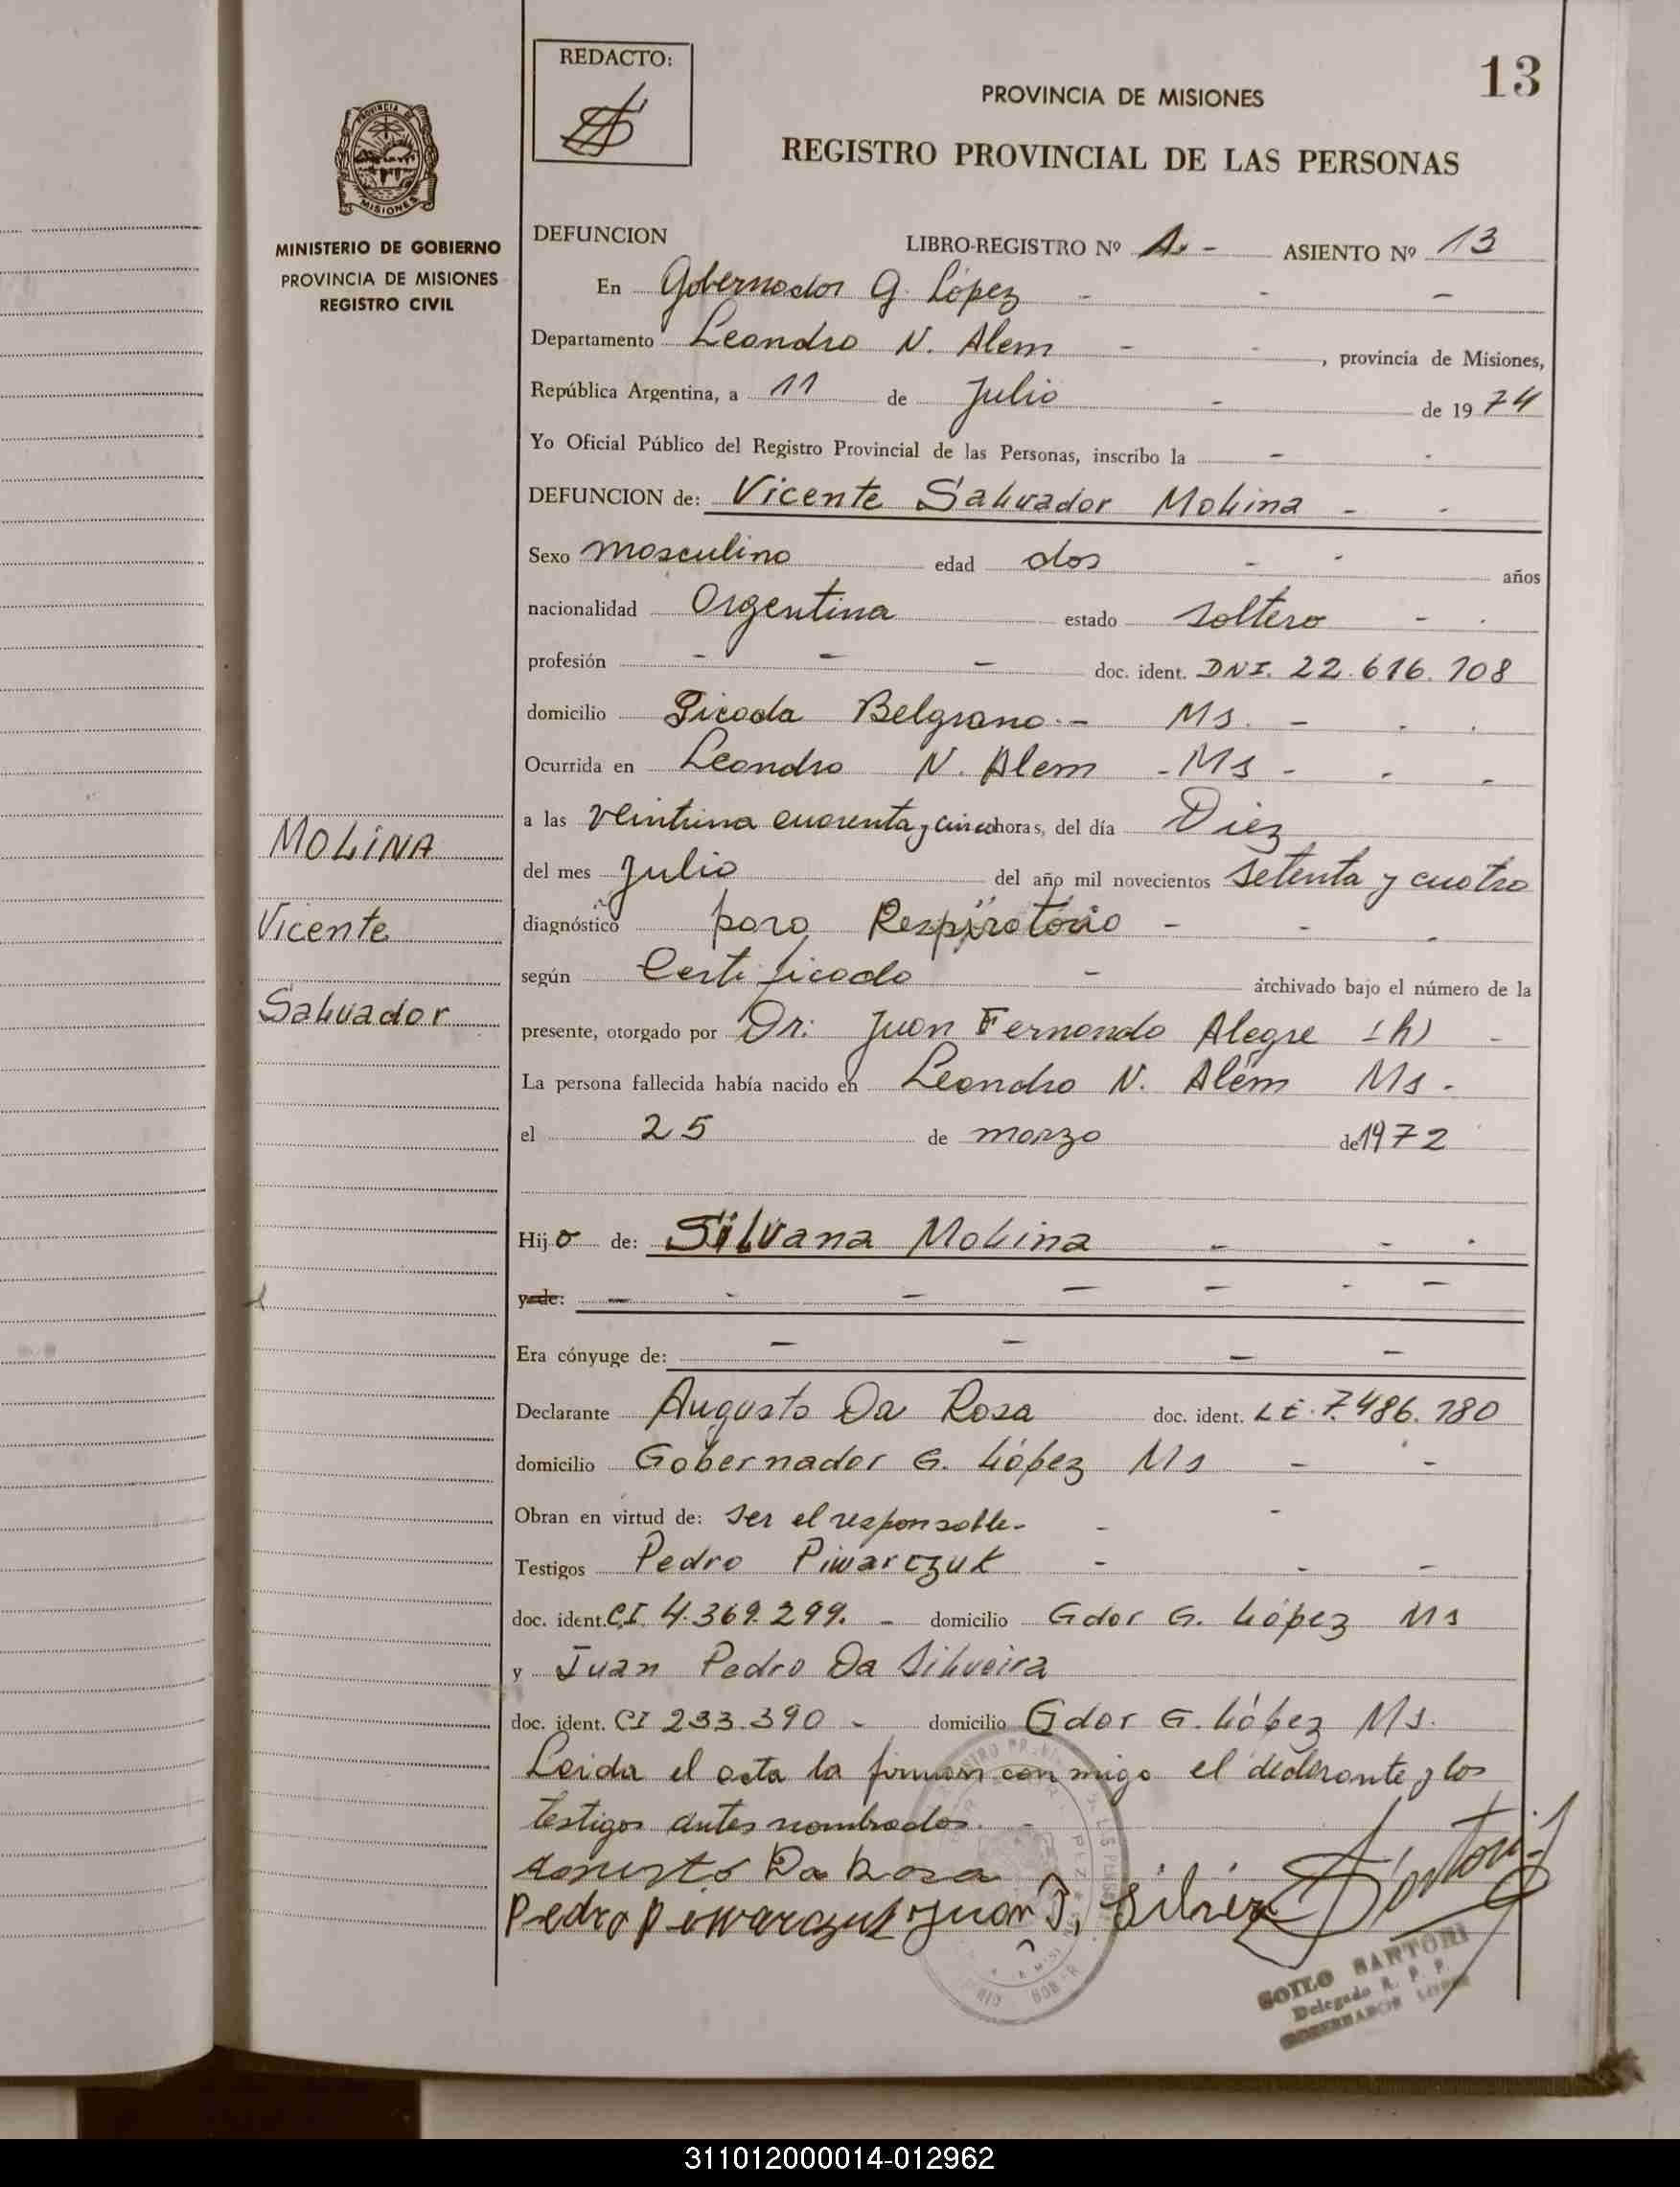 REDACTO:
13
PROVINCIA DE MISIONES
REGISTRO PROVINCIAL DE LAS PERSONAS
PROVINCIA DE
MISIONES
MINISTERIO DE GOBIERNO
PROVINCIA DE MISIONES
REGISTRO CIVIL
DEFUNCION LIBRO-REGISTRO Nº 1 - ASIENTO Nº 13
En Gobernador G. López - - -
Departamento Leandro N. Alem - - , provincia de Misiones,
República Argentina, a 11 de Julio - de 1974
Yo Oficial Público del Registro Provincial de las Personas, inscribo la - -
DEFUNCION de: Vicente Salvador Molina - -
Sexo masculino edad dos - - años
nacionalidad Argentina estado soltero - -
profesión - - - doc. ident. DNI. 22.616.108
domicilio Picada Belgrano.- Ms. - - -
Ocurrida en Leandro N. Alem - Ms - - -
a las veintiuna cuarenta y cinco horas, del día Diez
del mes Julio del año mil novecientos setenta y cuatro
diagnóstico paro Respiratorio - - -
según Certificado - archivado bajo el número de la
presente, otorgado por Dr: Juan Fernando Alegre (h) -
La persona fallecida había nacido en Leandro N. Alem Ms -
el 25 de marzo de 1972
Hijo de: Silvana Molina - - -
y de: - - - - - - -
Era cónyuge de: - - - -
Declarante Augusto Da Rosa doc. ident. LE. 7.486.180
domicilio Gobernador G. López Ms - -
Obran en virtud de: ser el responsable - - -
Testigos Pedro Piwarczuk - - -
doc. ident. CI. 4.369.299. - domicilio Gdor G. López Ms
y Juan Pedro Da Silveira
doc. ident. CI 233.390 - domicilio Gdor G. López Ms.
Leida el acta la firman conmigo el declarante y los
testigos antes nombrados. -
Da Rosa
Pedro Piwarczuk Juan
SOILO SARTORI
Delegado R. P. P.
GOBERNADOR LOPEZ
MOLINA
Vicente
Salvador
311012000014-012962